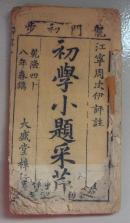 龍門初步
江寧周次伊評註
初學小題采芹
乾隆四十
八年春鐫
大盛堂梓行